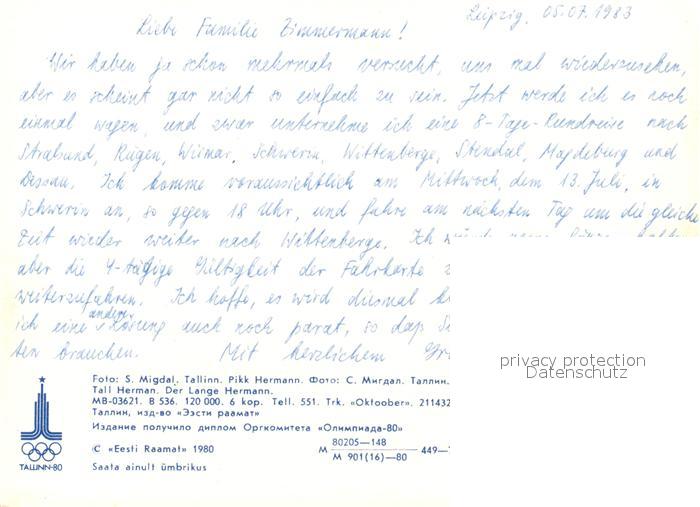 Leipzig, 05.07.1983
Liebe Familie Zimmermann!
Wir haben ja schon mehrmals versucht, uns mal wiederzusehen,
aber es scheint gar nicht so einfach zu sein. Jetzt werde ich es noch
einmal wagen, und zwar unternehme ich eine 8-Tage-Rundreise nach
Stralsund, Rügen, Wismar, Schwerin, Wittenberge, Stendal, Magdeburg und
Dessau. Ich komme voraussichtlich am Mittwoch, dem 13. Juli, in
Schwerin an, so gegen 18 Uhr, und fahre am nächsten Tag um die gleiche
Zeit wieder weiter nach Wittenberge. Ich
aber die 4-tägige Gültigkeit der Fahrkarte
weiterzufahren. Ich hoffe, es wird diesmal
ich eine andere Lösung auch noch parat, so daß
ten brauchen. Mit herzlichem
privacy protection
Datenschutz
Foto: S. Migdal. Tallinn. Pikk Hermann. Фото: С. Мигдал. Таллин.
Tall Herman. Der Lange Hermann.
MB-03621. B 536. 120 000. 6 kop. Tell. 551. Trk. «Oktoober». 211432
Таллин, изд-во «Ээсти раамат»
Издание получило диплом Оргкомитета «Олимпиада-80»
C «Eesti Raamat» 1980 M 80205—148 / M 901(16)—80 449—
TALLINN-80 Saata ainult ümbrikus